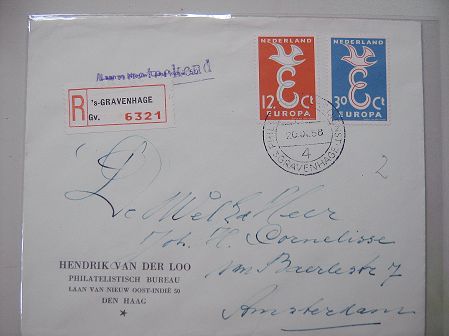 Aangetekend
R
's-GRAVENHAGE
Gv. 6321
NEDERLAND
12 Ct
EUROPA
NEDERLAND
30 Ct
EUROPA
's GRAVENHAGE
4
2
De Weled. Heer
Joh. H. Cornelisse
van Baerlestr 7
Amsterdam
HENDRIK VAN DER LOO
PHILATELISTISCH BUREAU
LAAN VAN NIEUW OOST-INDIË 50
DEN HAAG